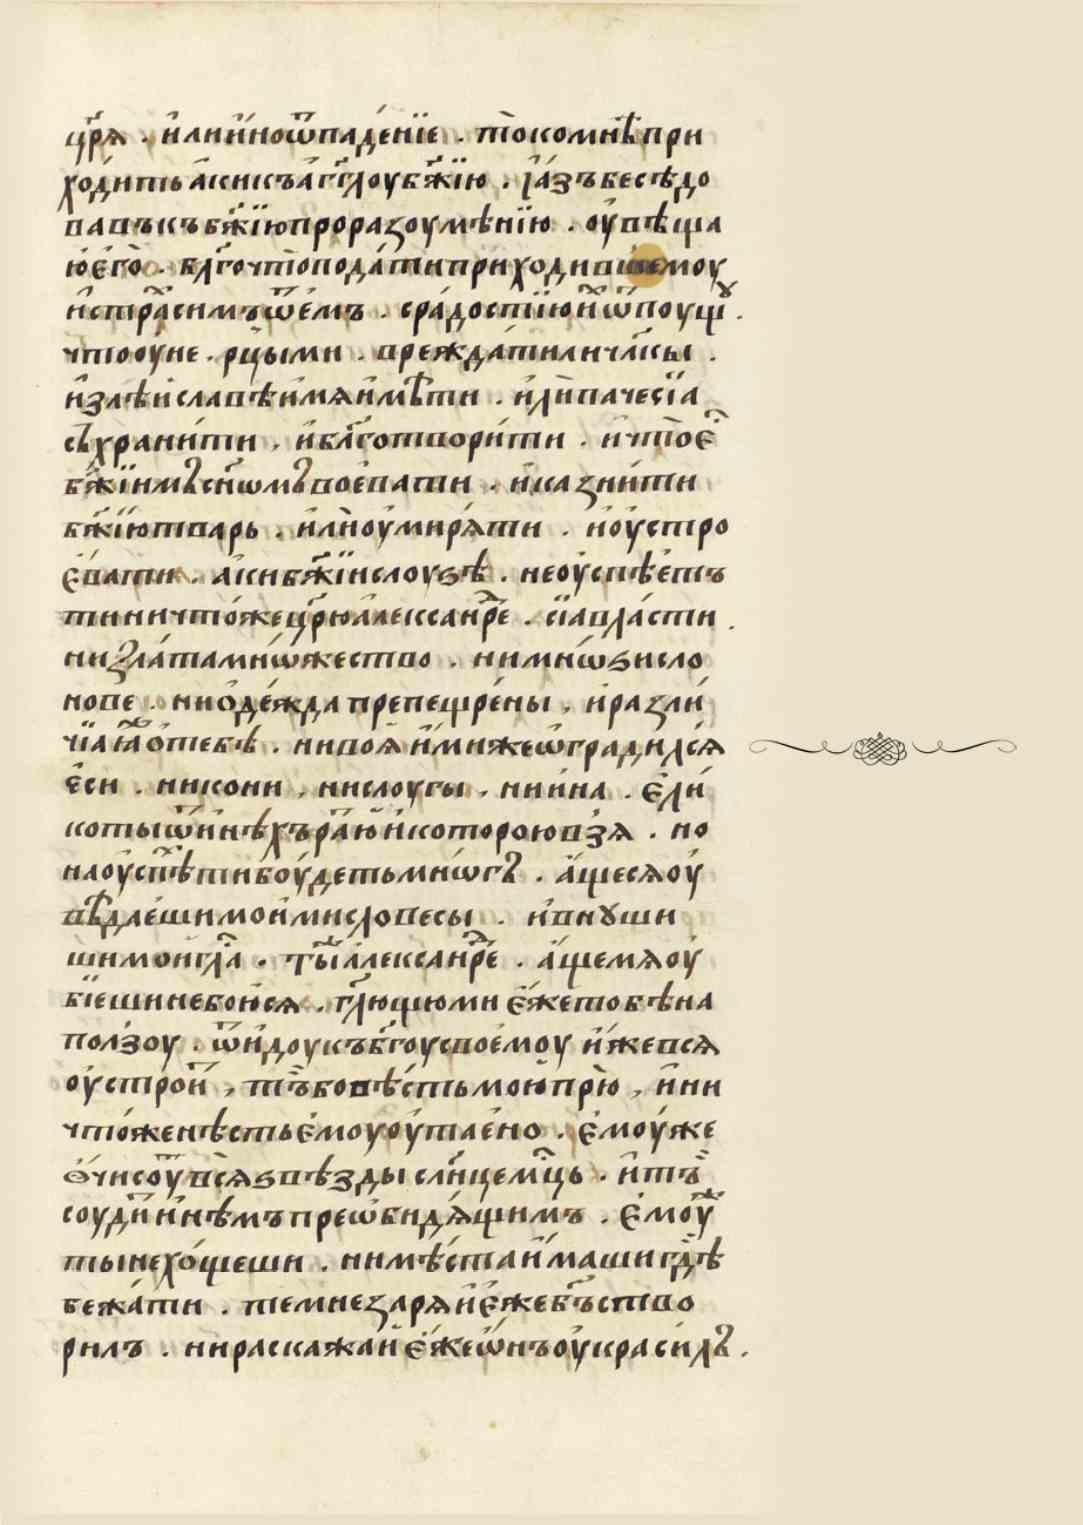 цр҃ѧ . и҆ли и҆но ѿпаде́нїе . то̀ ко мнѣ̀ при
хо́дить а҆ки къ а҆гг҃лоу бж҃їю . и҆ а҆́зъ бесѣдо
вавъ къ бж҃їю проразоумѣнїю . оу҆вѣща
ю е҆го̀ . бл҃го что̀ пода́ти приходившемоу
и҆ стра́симъ ѿ е҆мъ . с ра́достїю и҆ ѿпоущꙋ .
что оу҆не . рцы ми . врежда́ти ли чл҃кы .
и҆ злѣи славѣ и҆мѧ и҆мѣ́ти . и҆лѝ паче сїа
съхрани́ти . и҆ бл҃готвори́ти . и҆ что̀ є҆
бж҃їимъ сн҃ѡмъ воева́ти . и҆ казни́ти
бж҃їю тварь . и҆лѝ оу҆мирѧ́ти . и҆ оу҆стро
є҆́вати . а҆ки бж҃їи слоуѕѣ . не оу҆спѣ́етъ
ти ничто́же цр҃ю а҆леѯанре . сїа вла́сти .
ни зла́та мнѡ́жество . ни мнѡ́ѕи сло
нове . ни ѻ҆де́жда препещре́ны . и҆ разли́
чїа ꙗ҆̀ же ѻ҆ тебѣ̀ . ни воѧ̀ и҆́миже ѡ҆гради́лсѧ
є҆си . ни кони , ни слоугы . ни и҆на . є҆ли́
ко ты ѿ и҆нѣхъ ра́тїю и҆ которою взѧ . но
на оу҆спѣ́ти боу́деть мнѡ́гъ . а҆́ще сѧ оу҆
вѣ́даеши мои́ми словесы . и҆ внꙋши
ши мои гл҃а . ты̀ а҆леѯанре . а҆́ще мѧ оу҆
бїеши не бою́сѧ . гл҃ющю ми є҆́же тобѣ на
пол́зоу . ѿи҆доу къ бг҃оу своемоу и҆́же всѧ
оу҆строи́ , тъ̀ бо вѣ́сть мою̀ прю̀ , и҆ ни
что́же нѣсть є҆моу оу҆тае́но . є҆моу́же
ѻ҆́чи соу́ всѧ ѕвѣзды сл҃нце мц҃ь . и҆ тъ̀
соуди́ и҆нѣмъ преѡбидѧ́щимъ . є҆моу́
ты не хо́щеши . ни мѣ́ста и҆́маши гдѣ̀
бежа́ти . тем не зарѧи є҆́же бг҃ъ ство
рилъ . ни раскажаи є҆́же ѡ҆́нъ оу҆краси́лъ .